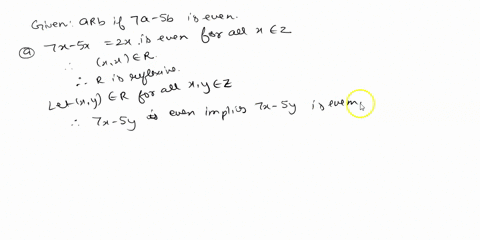 Given: aRb if 7a-5b is even.
ⓐ 7x-5x = 2x is even for all x ∈ Z
∴ (x,x) ∈ R.
∴ R is reflexive.
Let (x,y) ∈ R for all x,y ∈ Z
∴ 7x-5y is even implies 7x-5y is even,